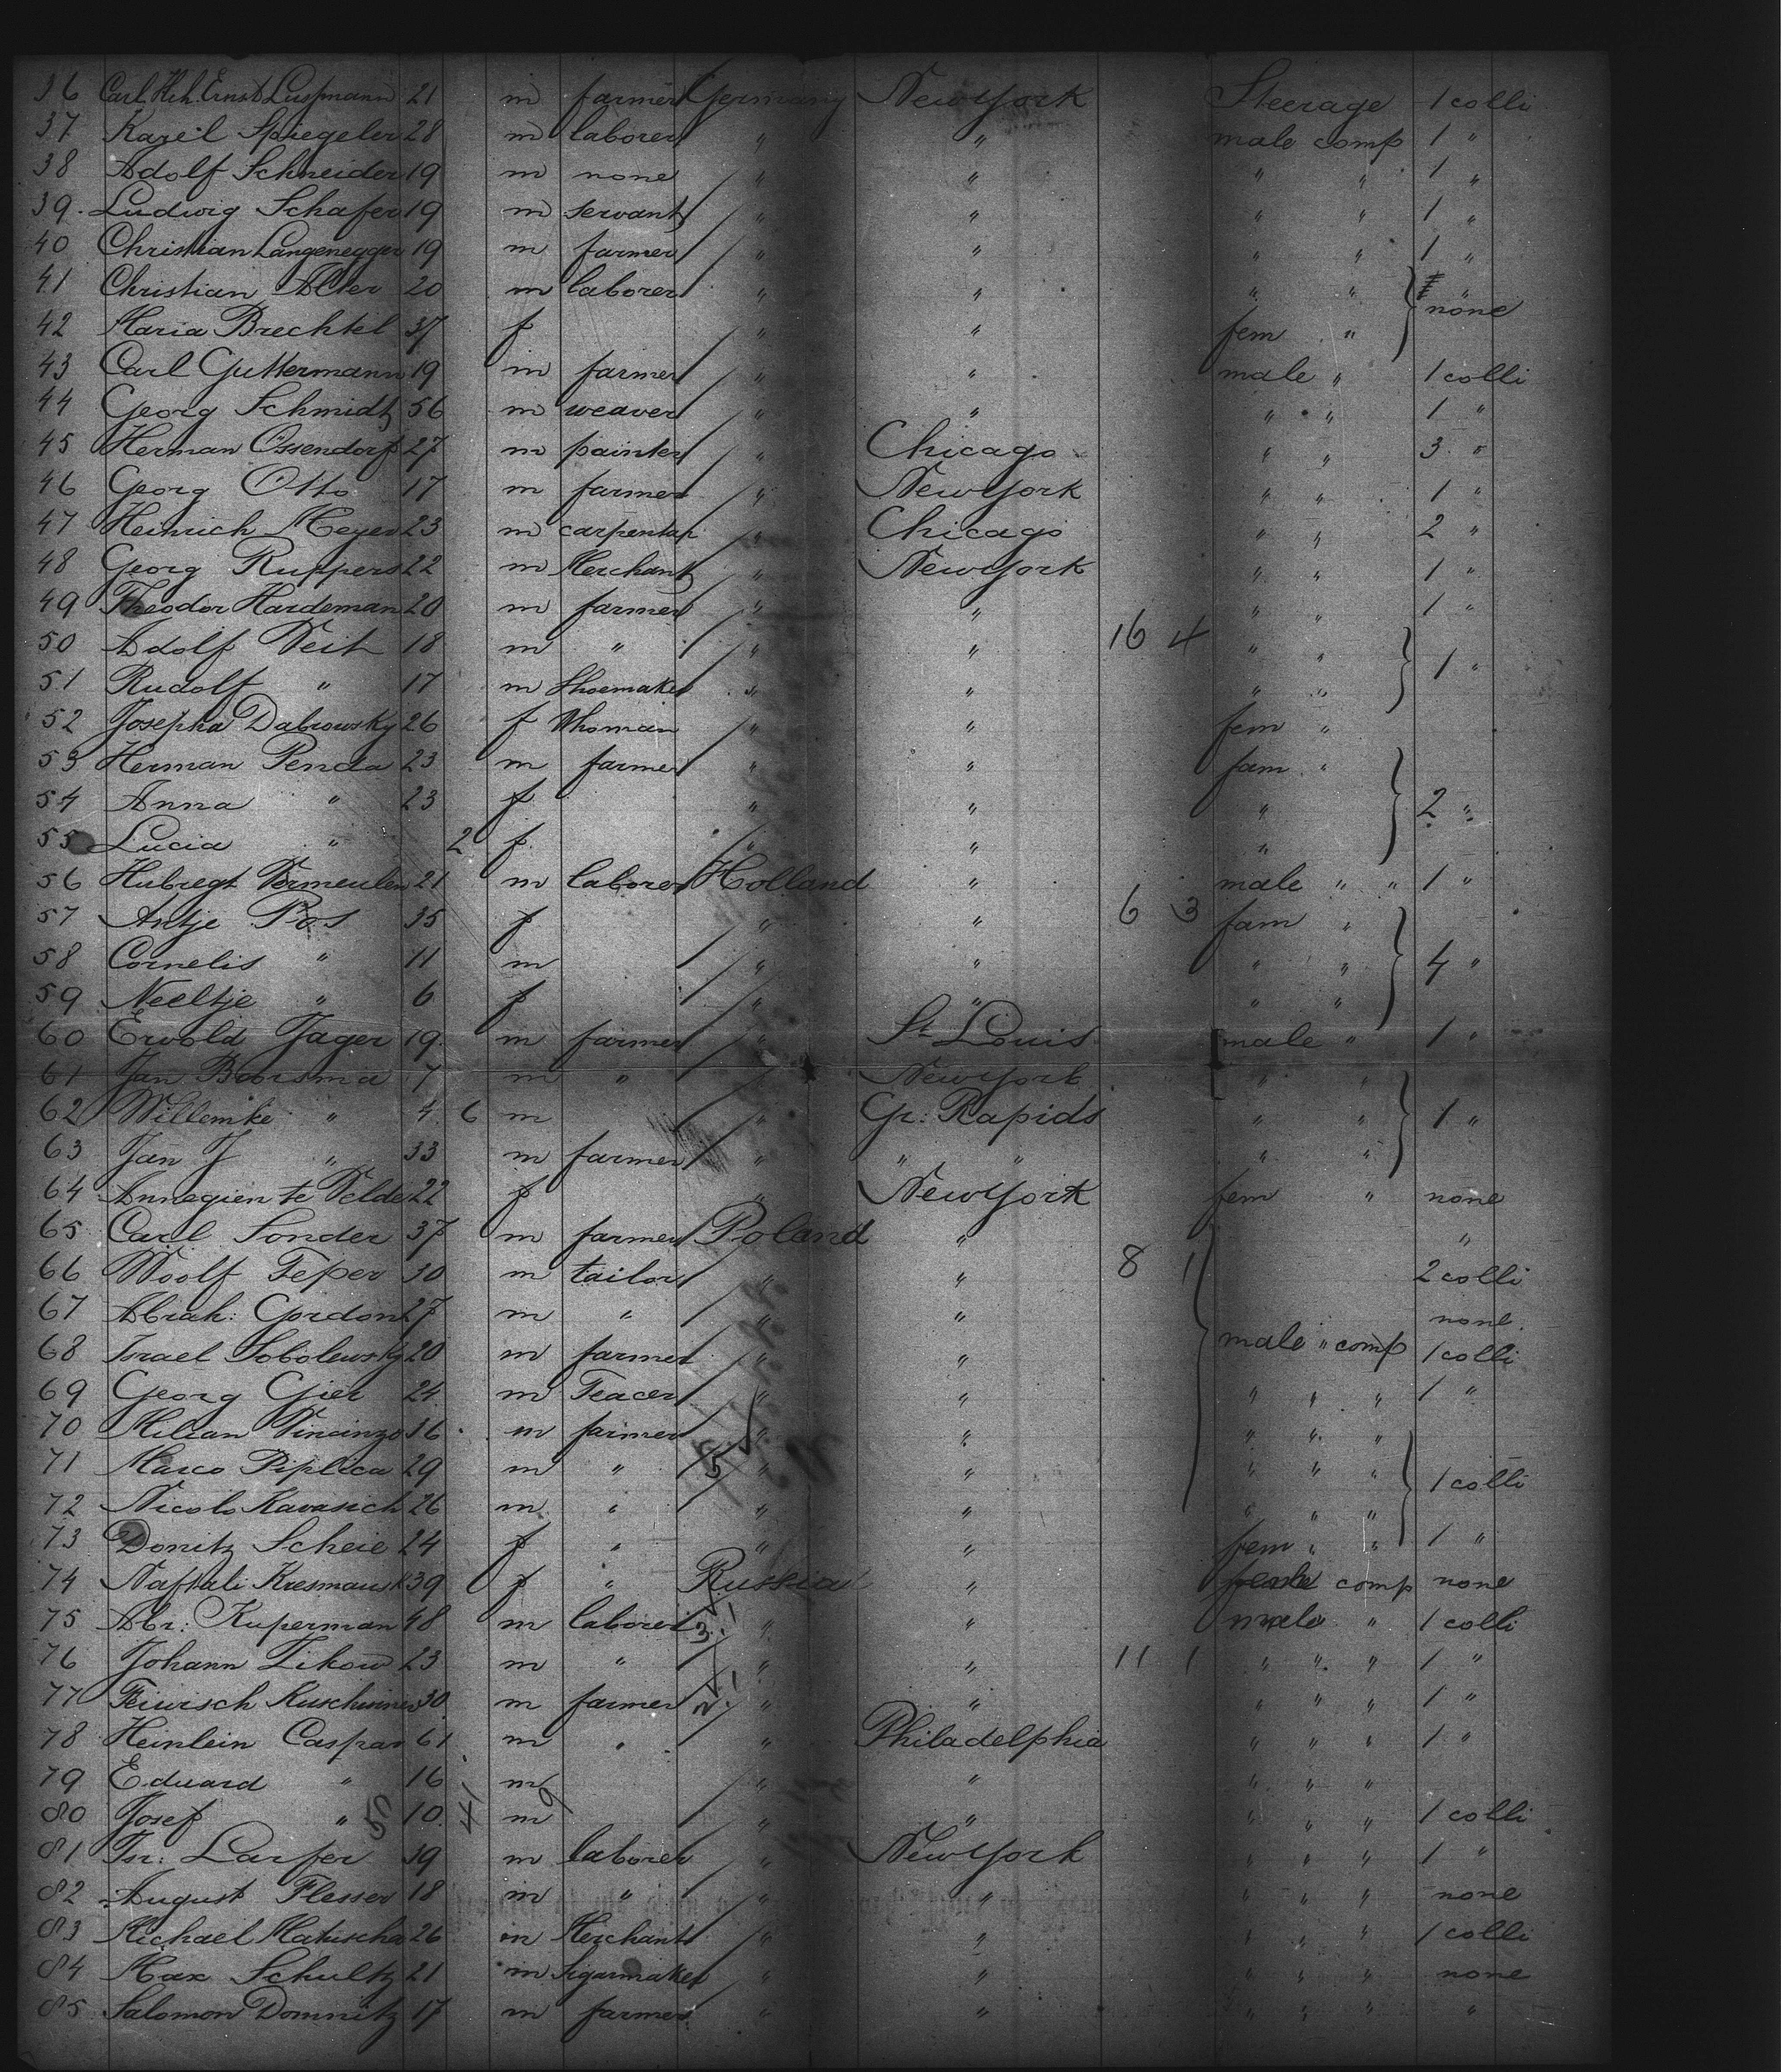 36 Carl Hch. Ernst Lussmann 21 m farmer Germany New York Steerage 1 colli
37 Karel Spiegeler 28 m laborer " " male comp 1 "
38 Adolf Schneider 19 m none " " " " 1 "
39. Ludwig Schafer 19 m servant " " " " 1 "
40 Christian Langenegger 19 m farmer " " " " 1 "
41 Christian Alter 20 m laborer " " " "
42 Maria Brechtel 37 f " " fem " none
43 Carl Guttermann 19 m farmer " " male " 1 colli
44 Georg Schmidt 56 m weaver " " " " 1 "
45 Herman Ossendorf 27 m painter " Chicago " " 3 "
46 Georg Otto 17 m farmer " New York " " 1 "
47 Heinrich Meyer 23 m carpentar " Chicago " " 2 "
48 Georg Ruppers 22 m Merchant " New York " " 1 "
49 Theodor Hardeman 20 m farmer " " " " 1 "
50 Adolf Veit 18 m " " " 16 4 " " 1 "
51 Rudolf " 17 m Shoemaker " " " "
52 Josepha Dabrowsky 26 f Whoman " " fem "
53 Herman Penda 23 m farmer " " fam "
54 Anna " 23 f " " " 2 "
55 Lucia " 2 f " " "
56 Hubregt Vermeulen 21 m laborer Holland " male " " 1 "
57 Antje Pos 35 f " " 6 3 fam "
58 Cornelis " 11 m " " " " 4 "
59 Neeltje " 6 f " " " "
60 Ewold Jager 19. m farmer " St Louis male " 1 "
61 Jan Boorsma 7 m " " New York " "
62 Willemke " 4 6 m " Gr: Rapids " " 1 "
63 Jan J " 33 m farmer " " " " "
64 Annegien te Velde 22 f " New York fem " none
65 Carl Sonder 37 m farmer Poland " "
66 Woolf Feper 30 m tailor " " 8 1 2 colli
67 Abrah: Gordon 27 m " " " none.
68 Israel Sobolewsky 20 m farmer " " male " comp 1 colli
69 Georg Gier 24 m Teacer " " " " " 1 "
70 Milian Vincinzo 36 m farmer " " " " "
71 Marco Piplica 29 m " 5 " " " " " 1 colli
72 Nicolo Kavasich 26 m " " " " " "
73 Donitz Scheie 24 f " " " fem " " 1 "
74 Naftali 39 f " Russia " comp none
75 Abr: Kuperman 48 m laborer 3.1 " " male " 1 colli
76 Johann Zikow 23 m " " " 11 1 " " " 1 "
77 Feiwisch 30 m farmer 2.1 " " " " " 1 "
78 Heinlein Caspar 61 m " " Philadelphia " " " 1 "
79 Eduard " 16 m " " " " "
80 Josef " 50 10. 41 m 9 " " " " " 1 colli
81 Isr: Larfer 39 m laborer " New York " " " 1 "
82 August Flesser 18 m " " " " " " none
83 Michael Matuscha 26 m Merchant " " " " " 1 colli
84 Max Schultz 21 m Sigarmaker " " " " " none
85 Salomon Domnitz 17 m farmer " " " " " "